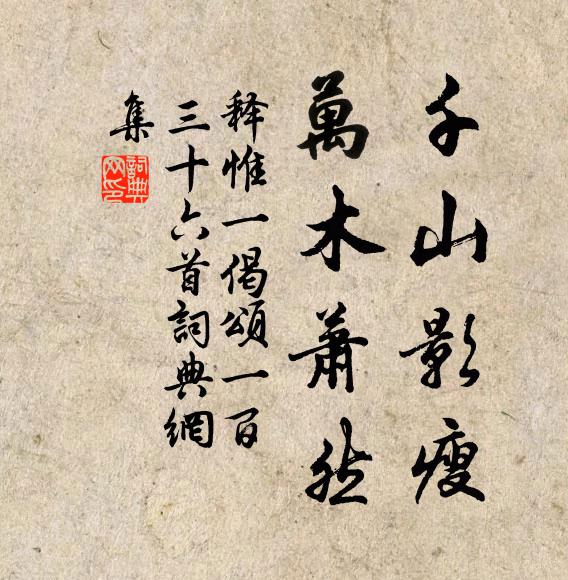 千山影瘦
萬木蕭然
释惟一偈頌一百
三十六首詞典網
集
詞典
网印